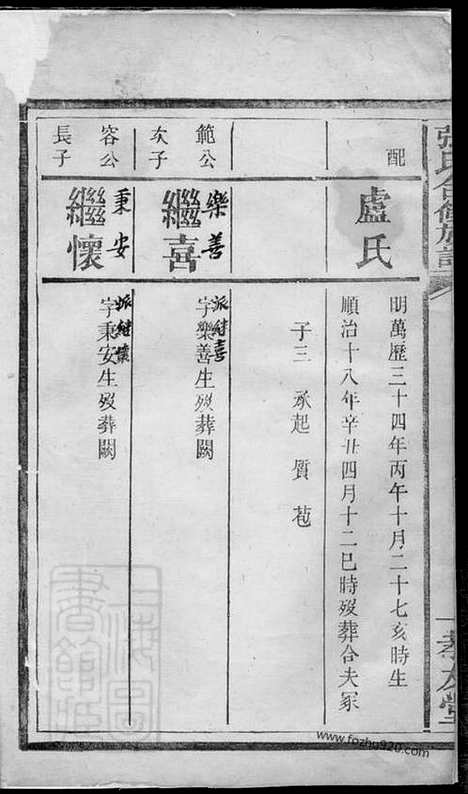 張氏合修族譜
孝友堂
配
盧氏
明萬歷三十四年丙午十月二十七亥時生
順治十八年辛丑四月十二巳時歿葬合夫冡
子三 承起 質 苞
範公
次子
樂善
繼喜
派繼喜
字樂善生歿葬闕
容公
長子
秉安
繼懷
派繼懷
字秉安生歿葬闕
上海圖書館藏
www.fozhu920.com